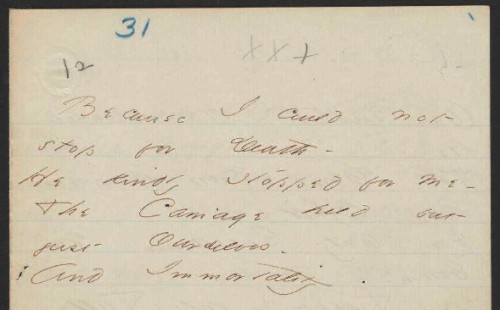 31
12
+ x x
Because I could not
stop for Death -
He kindly stopped for me -
The Carriage held but
just Ourselves -
And Immortality.